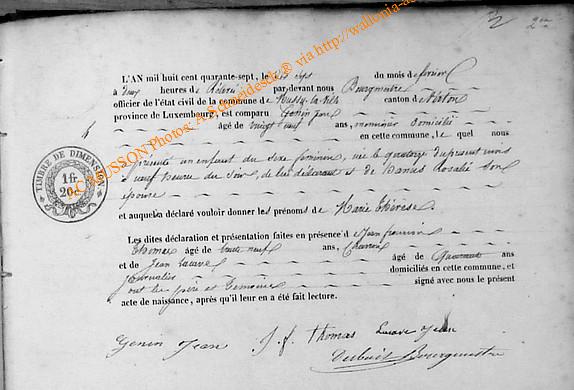 2
L'AN mil huit cent quarante-sept, le dix sept du mois de février
à deux heures de relevée par devant nous Bourgmestre
officier de l'état civil de la commune de Mussy-la-Ville canton de Virton
province de Luxembourg, est comparu Genin Jean
âgé de vingt neuf ans, domicilié
en cette commune, le quel nous
a présenté un enfant du sexe féminin, née le quatorze du présent mois
à neuf heures du soir, de lui déclarant et de Rosalie son
épouse
et auquel a déclaré vouloir donner les prénoms de Marie Thérèse
Les dites déclaration et présentation faites en présence de Jean françois
Thomas âgé de trente neuf ans, Charron
et de Jean âgé de Quarante ans
Journalier domiciliés en cette commune, et
ont les père et témoins signé avec nous le présent
acte de naissance, après qu'il leur en a été fait lecture.
Genin Jean J. f. thomas Jean
Bourgmestre
TIMBRE DE DIMENSION
1 fr.
20
MUSSON Photos: via http://wallonia-as